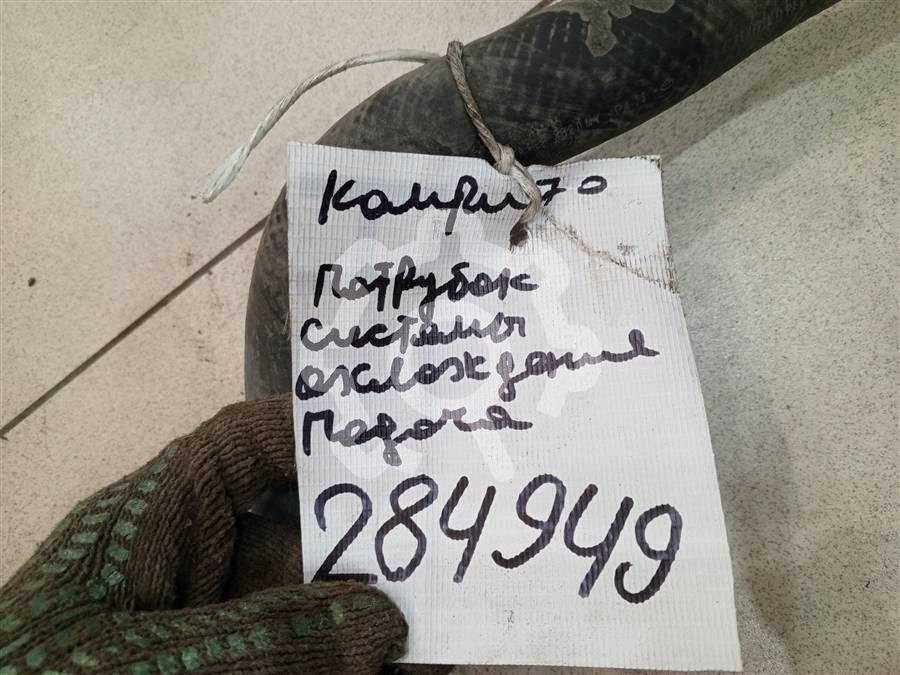 Камри 70
Патрубок
системы
охлождения
Подача
284949